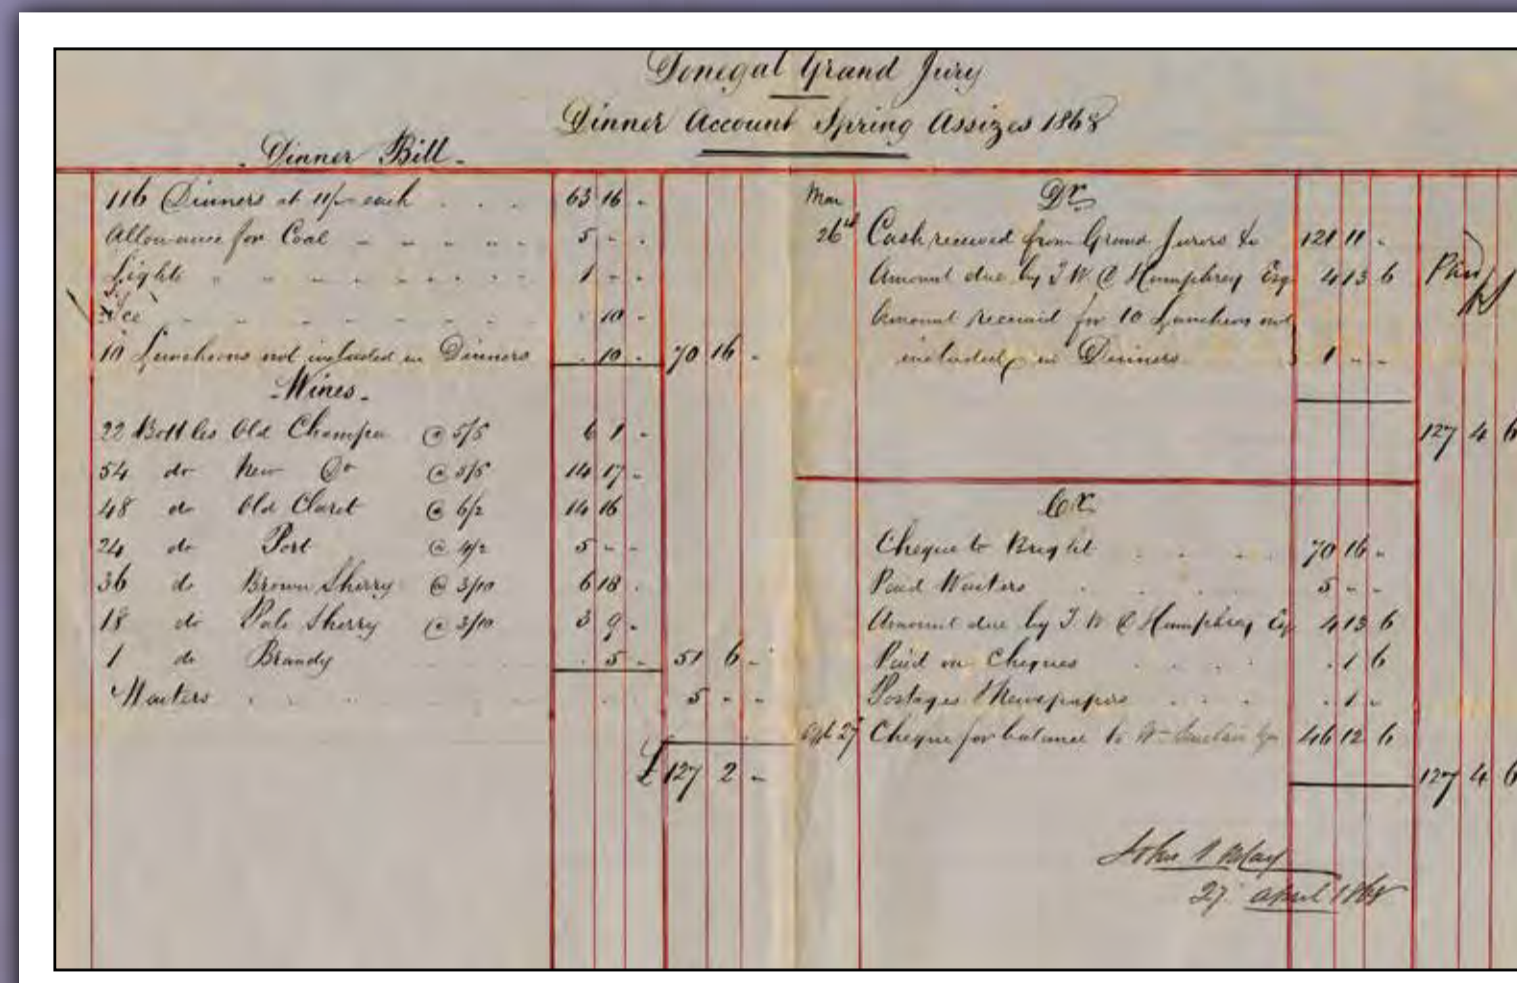 Donegal Grand Jury
Dinner Account Spring Assizes 1868
Dinner Bill
116 Dinners at 11/- each 63 16 -
Allowance for Coal 5 - -
Lights 1 - -
Ice 10 -
10 Luncheons not included in Dinners 10 - 70 16 -
Wines
22 Bottles Old Champn @ 5/5 6 1 -
54 do New Do @ 5/5 14 17 -
48 do Old Claret @ 6/2 14 16
24 do Port @ 4/2 5 - -
36 do Brown Sherry @ 3/10 6 18 -
18 do Pale Sherry @ 3/10 3 9 -
1 do Brandy 5 - 51 6 -
Waiters 5 - -
£127 2 -
Mar Dr
26 Cash received from Grand Jurors &c 121 11 -
Amount due by T W D Humphrey Esq 4 13 6 Paid
Amount received for 10 Luncheons not
included in Dinners 1 - -
127 4 6
Cr
Cheque to Bright 70 16 -
Paid Waiters 5 - -
Amount due by T W D Humphrey Esq 4 13 6
Paid on Cheques 1 6
Postages & Newspapers 1 -
27 Cheque for balance to Wm Sinclair Esq 46 12 6
127 4 6
John
27 April 1868